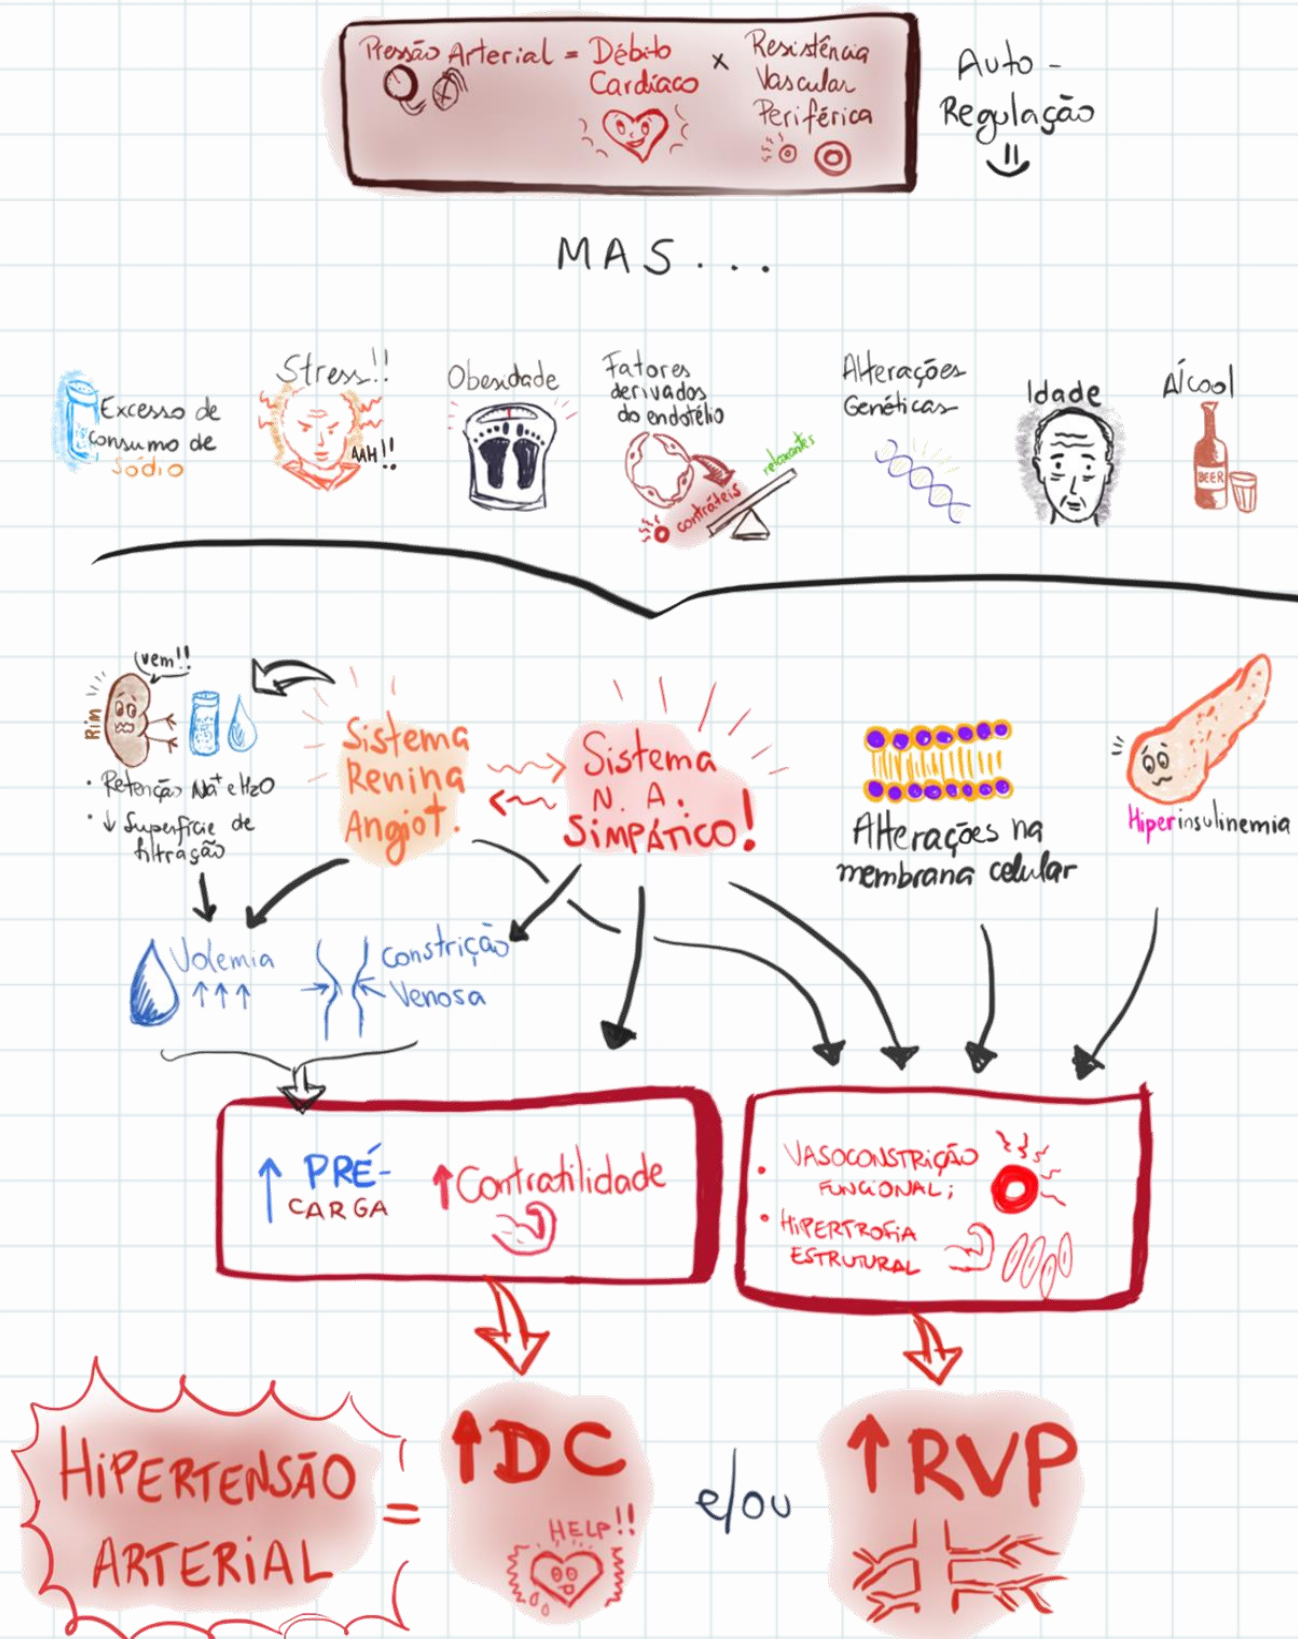 Pressão Arterial = Débito Cardíaco x Resistência Vascular Periférica
Auto-
Regulação
MAS...
Excesso de
consumo de
sódio
Stress!!
AAH!!
Obesidade
Fatores
derivados
do endotélio
contráteis
relaxantes
Alterações
Genéticas
Idade
Álcool
BEER
Rim
vem!!
• Retenção Na+ e H2O
• ↓ Superfície de
filtração
Sistema
Renina
Angiot.
Sistema
N. A.
SIMPÁTICO!
Alterações na
membrana celular
Hiperinsulinemia
Volemia
↑↑↑
Constrição
Venosa
↑ PRÉ-
CARGA
↑Contratilidade
• VASOCONSTRIÇÃO
FUNCIONAL;
• HIPERTROFIA
ESTRUTURAL
HIPERTENSÃO
ARTERIAL
=
↑DC
HELP!!
e/ou
↑RVP